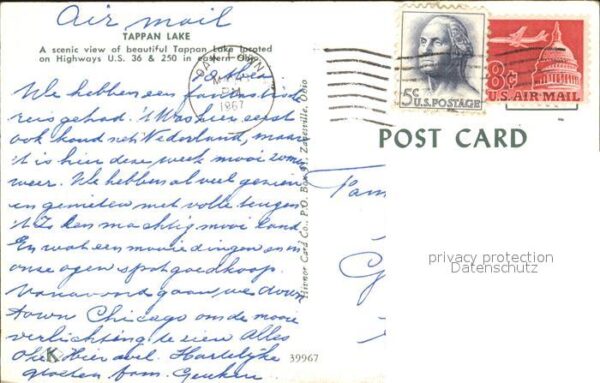 Air mail
TAPPAN LAKE
A scenic view of beautiful Tappan Lake located
on Highways U.S. 36 & 250 in eastern Ohio
1967
5¢
U.S. POSTAGE
8¢
U.S. AIR MAIL
POST CARD
We hebben een fantastische
reis gehad. 't Was hier eerst
ook koud net Nederland, maar
't is hier deze week mooi zomer
weer. We hebben al veel gezien
en genieten met volle teugen
't Is een machtig mooi land
En wat een mooie dingen en in
onze ogen spotgoedkoop.
Vanavond gaan we down
town Chicago om de mooie
verlichting te zien Alles
oke hier ook. Hartelijke
groeten fam. Geuken
Hinnor Card Co., P.O. Box Zanesville, Ohio
Fam
privacy protection
Datenschutz
K
39967